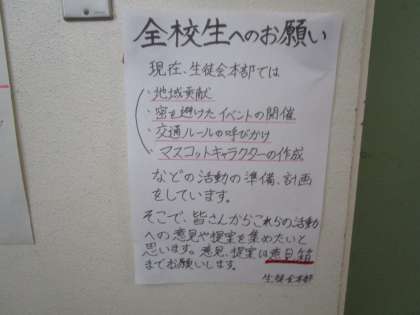 全校生へのお願い
現在、生徒会本部では
・地域貢献
・密を避けたイベントの開催
・交通ルールの呼びかけ
・マスコットキャラクターの作成
などの活動の準備、計画
をしています。
そこで、皆さんからこれらの活動
への意見や提案を集めたいと
思います。意見、提案は意見箱
までお願いします。
生徒会本部